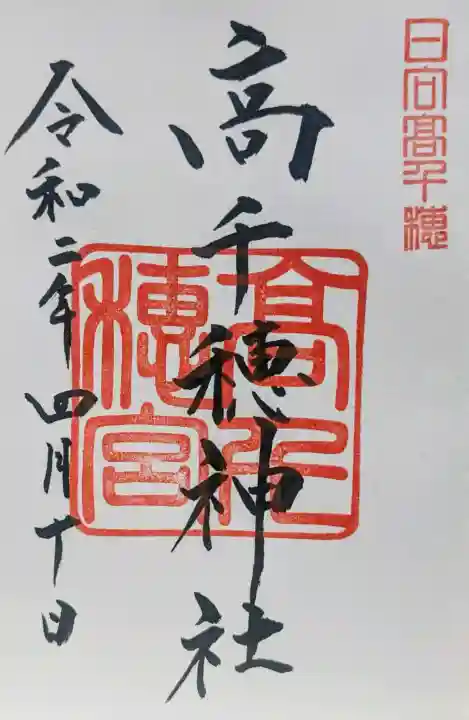 日向高千穂
高千穂神社
高千穂宮
令和二年四月丁日